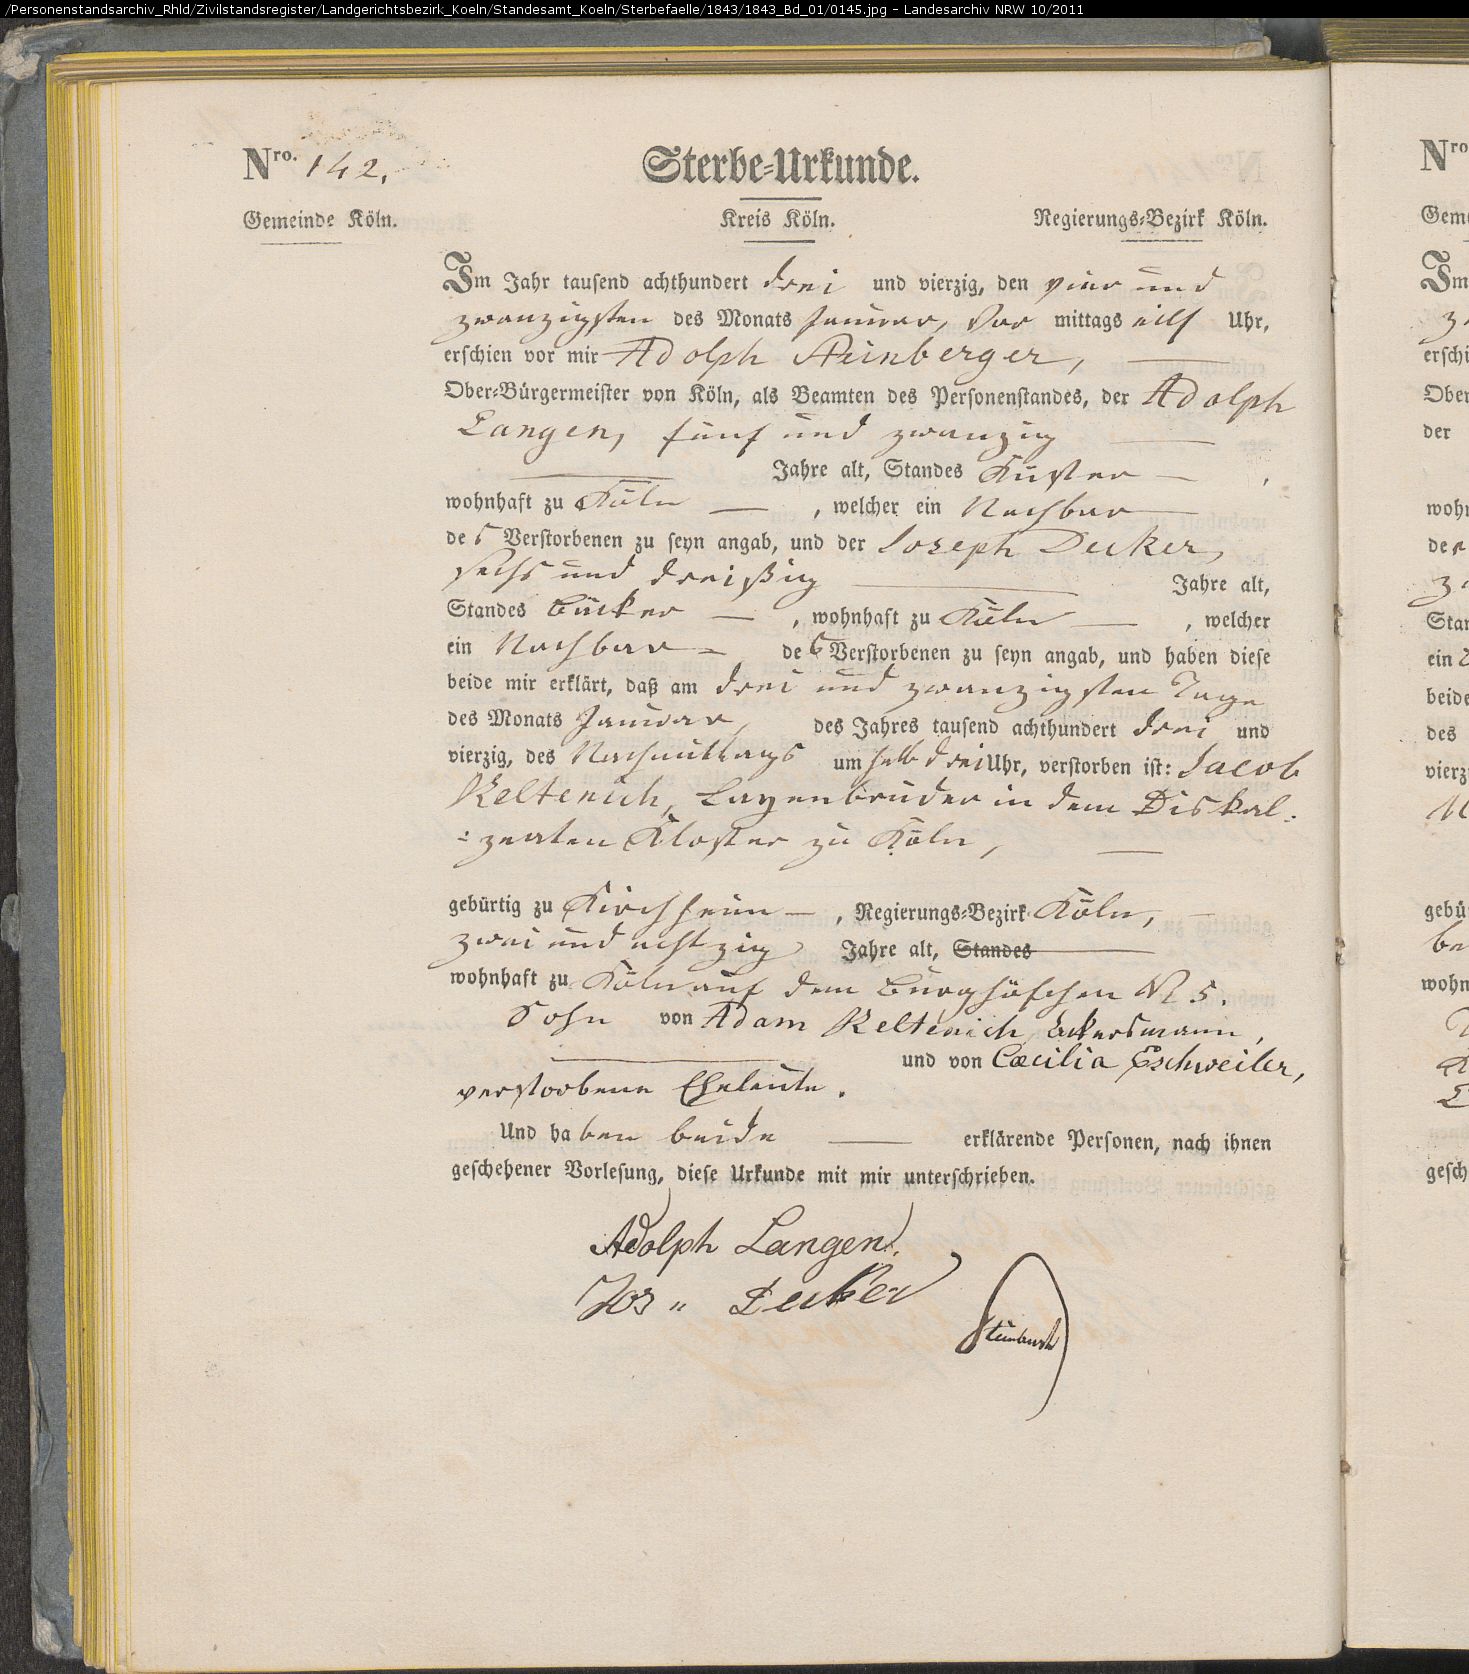 /Personenstandsarchiv_Rhld/Zivilstandsregister/Landgerichtsbezirk_Koeln/Standesamt_Koeln/Sterbefaelle/1843/1843_Bd_01/0145.jpg - Landesarchiv NRW 10/2011
Nro. 142. Sterbe=Urkunde.
Gemeinde Köln. Kreis Köln. Regierungs=Bezirk Köln.
Im Jahr tausend achthundert drei und vierzig, den vier und
zwanzigsten des Monats Januar, Vor mittags eilf Uhr,
erschien vor mir Adolph Steinberger,
Ober=Bürgermeister von Köln, als Beamten des Personenstandes, der Adolph
Langen, fünf und zwanzig
Jahre alt, Standes Küster ,
wohnhaft zu Köln , welcher ein Nachbar
des Verstorbenen zu seyn angab, und der Joseph Decker,
sechs und dreißig Jahre alt,
Standes Bäcker , wohnhaft zu Köln , welcher
ein Nachbar des Verstorbenen zu seyn angab, und haben diese
beide mir erklärt, daß am drei und zwanzigsten Tage
des Monats Januar, des Jahres tausend achthundert drei und
vierzig, des Nachmittags um halb drei Uhr, verstorben ist: Jacob
Keltenich, Layenbruder in dem Diskal:
:zeaten Kloster zu Köln,
gebürtig zu Kirchheim , Regierungs=Bezirk Köln,
zwei und achtzig Jahre alt, Standes
wohnhaft zu Köln auf dem Burghöfchen No 5.
Sohn von Adam Keltenich, Ackersmann,
und von Cæcilia Eschweiler,
verstorbene Eheleute.
Und haben beide erklärende Personen, nach ihnen
geschehener Vorlesung, diese Urkunde mit mir unterschrieben.
Adolph Langen.
Jos " Decker
Nro
Gem
Im
erschi
Ober
der
wohn
der
Stan
ein
beide
des
vierz
gebü
wohn
gesch